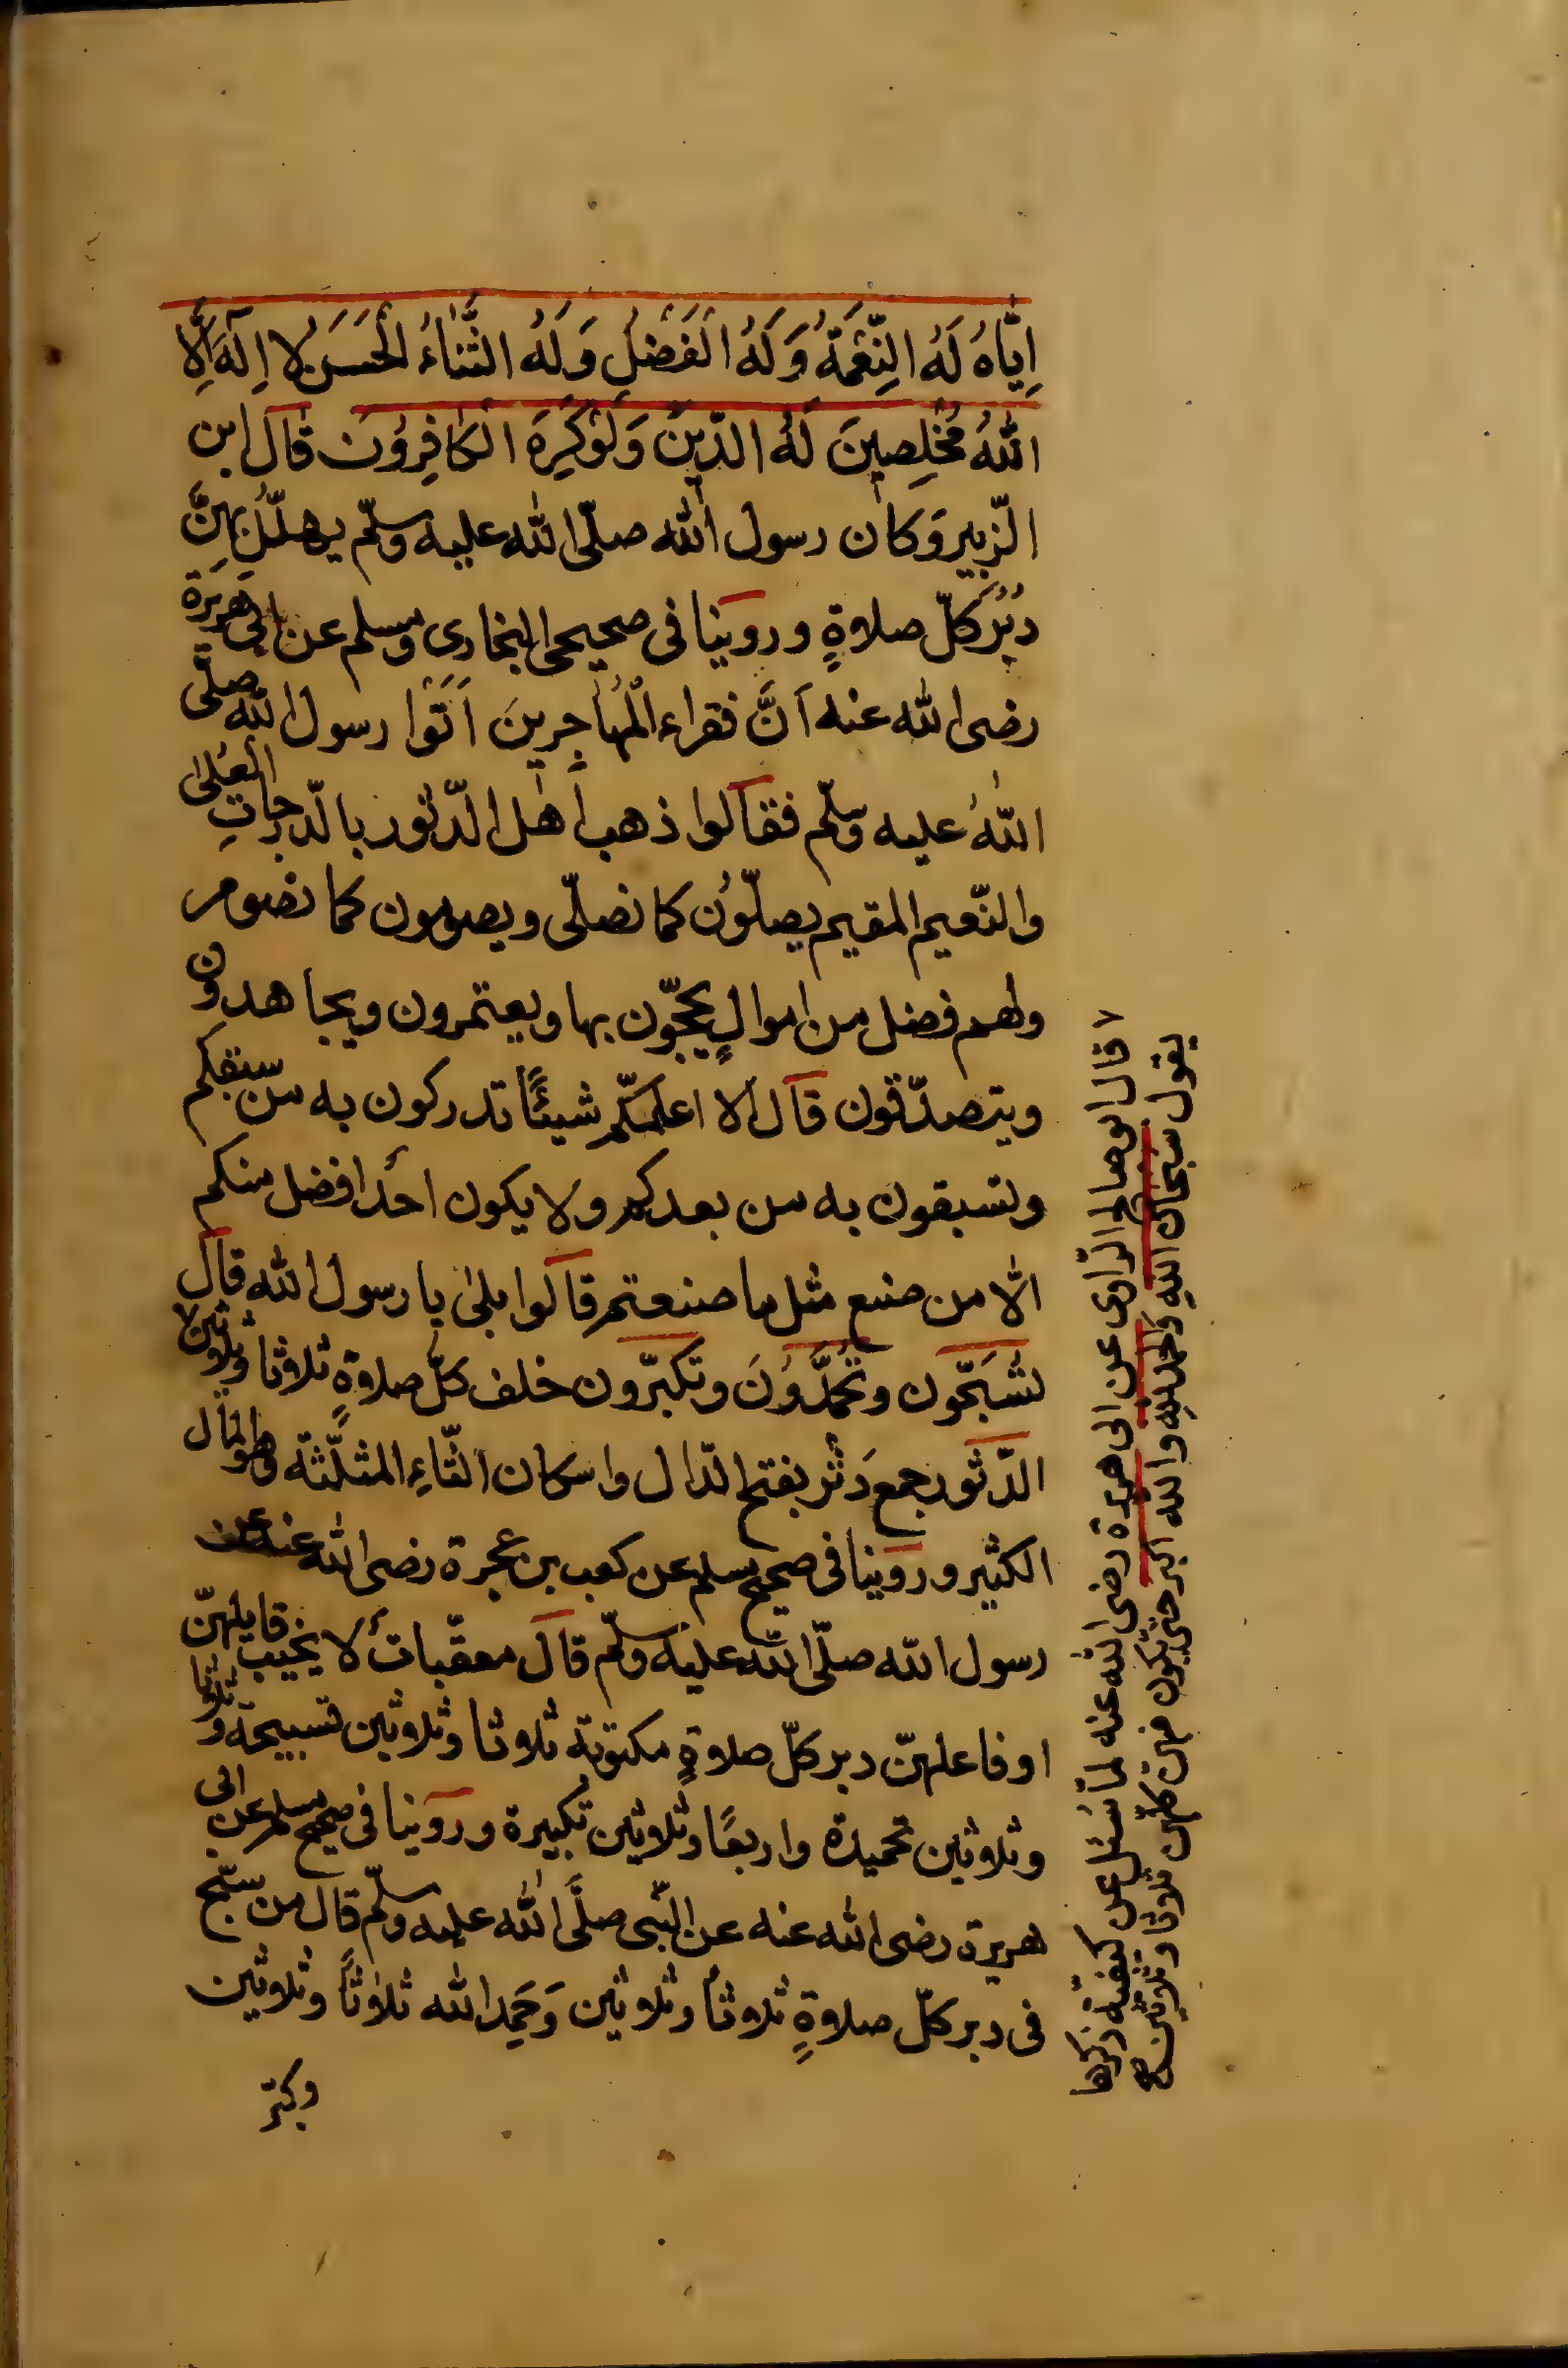 اِيَّاهُ لَهُ النِّعْمَةُ وَلَهُ الْفَضْلُ وَلَهُ الثَّنَاءُ الْحَسَنُ لا اِلَهَ اِلَّا
اللهُ مُخْلِصِينَ لَهُ الدِّينَ وَلَوْ كَرِهَ الْكَافِرُونَ قال ابن
الزّبير وَكان رسول الله صلّى الله عليه وسلّم يهلّلُ بِهِنَّ
دُبُرَ كلّ صلاةٍ وروينا فى صحيحى البخارى ومسلم عن ابى هريرة
رضى الله عنه اَنَّ فقراء الْمُهاجِرِينَ اَتَوْا رسول الله صلّى
اللهُ عليه وسلّم فقالوا ذهب اَهل الدّثور بالدّرجاتِ العُلىٰ
والنّعيم المقيم يصلّوُن كما نصلّى ويصومون كما نصوم
ولهم فضل من اموالٍ يحجّون بها ويعتمرون ويجاهدون
ويتصدّقون قال ألا اعلمكّم شيئًا تدركون به من سبقكم
وتسبقون به من بعدكم ولا يكون احدأ افضل منكم
الّا من صنع مثل ما صنعتم قالوا بلىٰ يا رسول الله قال
تُسَبّحون وتَحْمَدُونَ وتكبّرون خلف كلّ صلاةٍ ثلاثًا وثلاثين ٧
الدّثور جمع دَثْر بفتح الدّال واسكان الثّاءِ المثلّثة وهو المال
الكثير وروينا فى صحيح مسلم عن كعب بن عجرة رضى الله عنه عن
رسول الله صلّى الله عليه وسلّم قال معقّبات لا يخيب قايلهنّ
او فاعلهنّ دبر كلّ صلاةٍ مكتوبة ثلاثا وثلاثين تسبيحة وثلاثا
وثلاثين تحميدة واربعًا وثلاثين تكبيرة وروينا فى صحيح مسلم عن ابى
هريرة رضى الله عنه عن النّبى صلَّى الله عليه وسلّم قال من سبّح
فى دبر كلّ صلاةٍ ثلاثاً وثلاثين وَحَمِد الله ثلاثاً وثلاثين
وكبّر
٧ قال ابو صالح الرّاوى عن ابى هريرة رضى الله عنه لمّا سُئل عن كيفيّة ذكرها
يقول سبحان اللهِ والحمد للهِ والله اكبر حتّى يكون منهنّ كلّهنّ ثلاثا وثلاثين صح